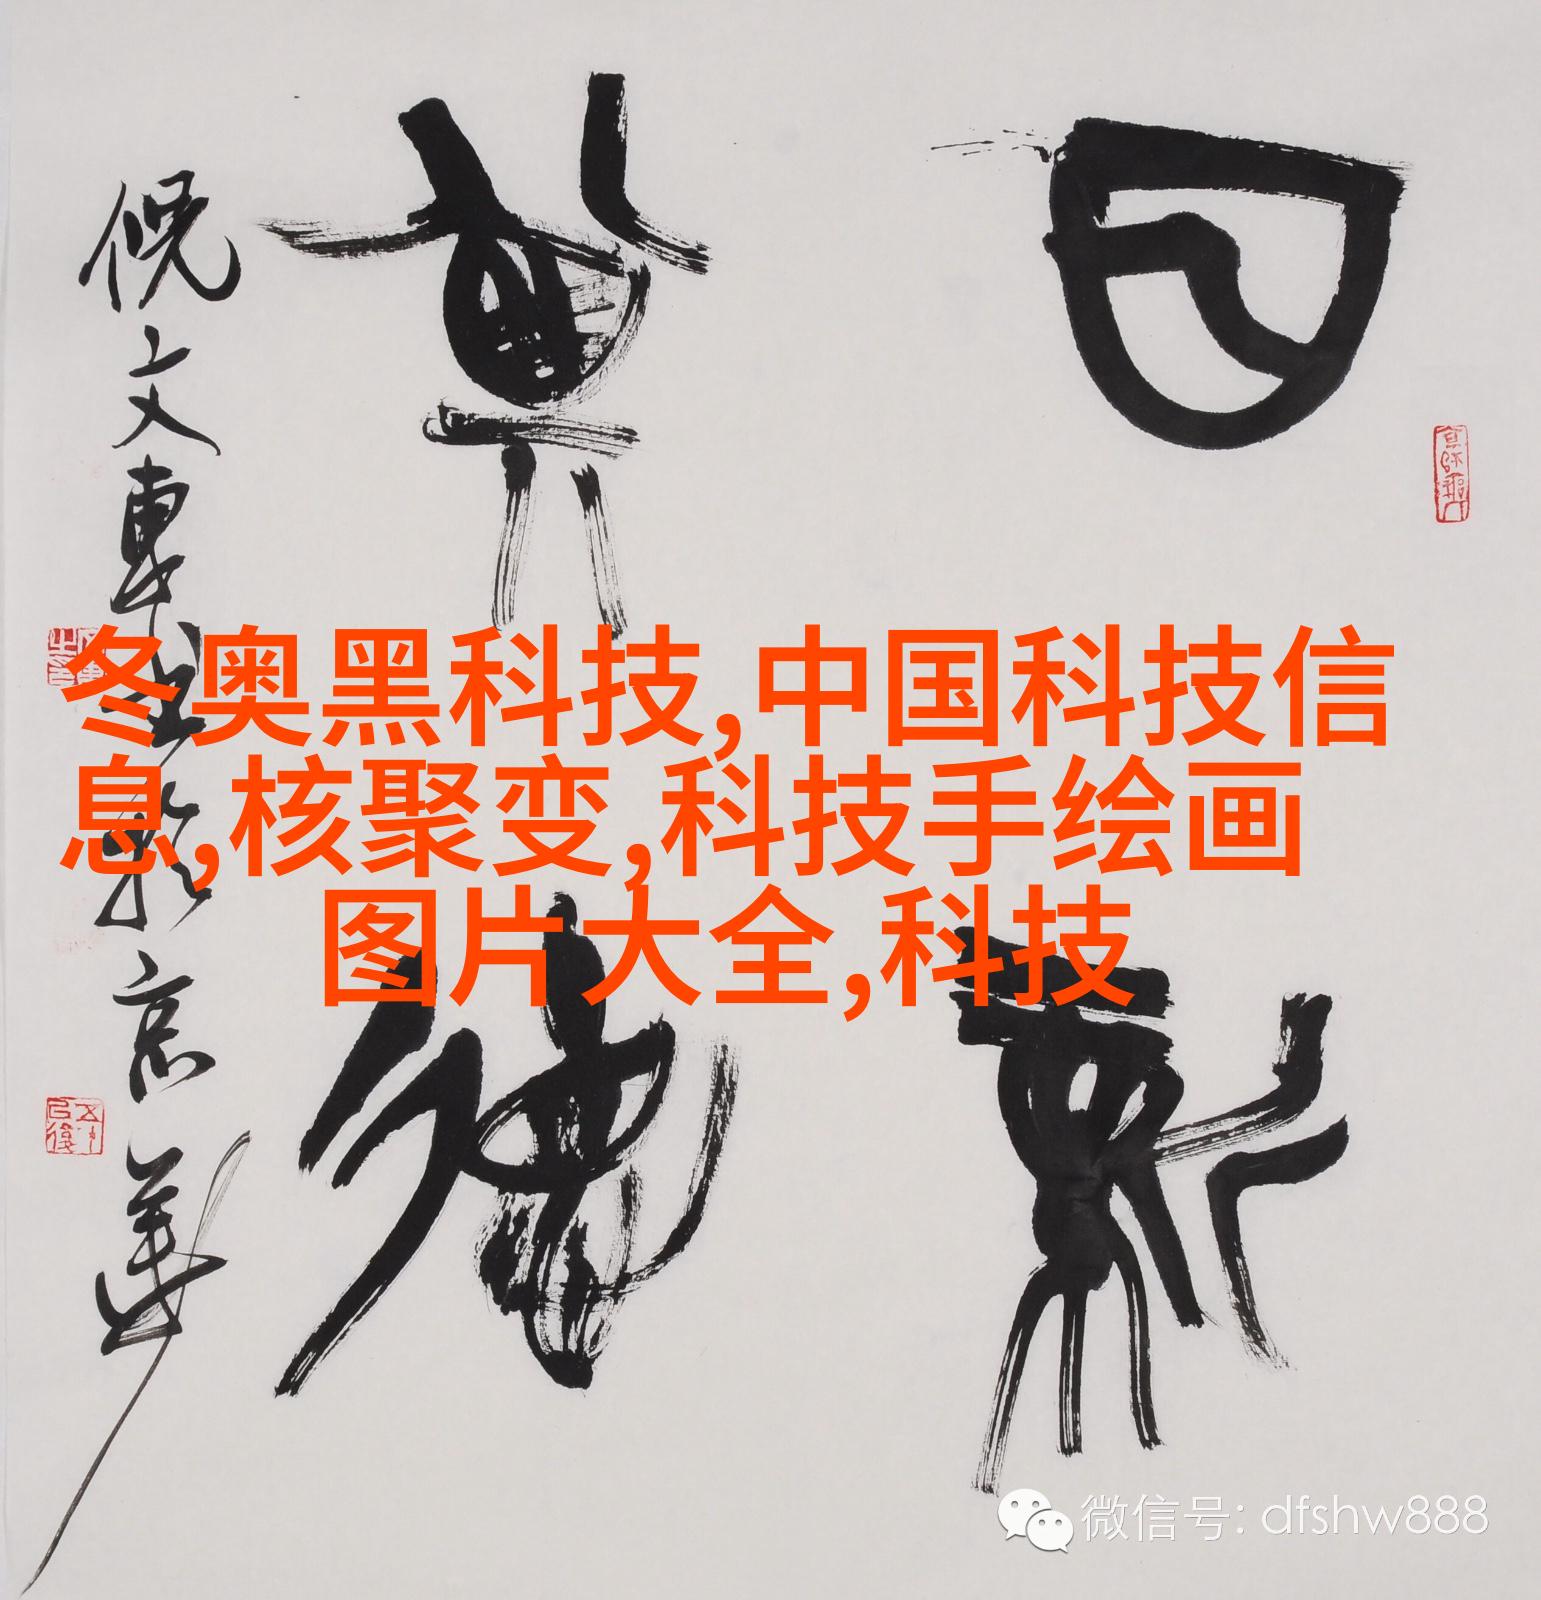 日新
其德
倪文東书於京華
冬奥黑科技,中国科技信
息,核聚变,科技手绘画
图片大全,科技
微信号: dfshw888